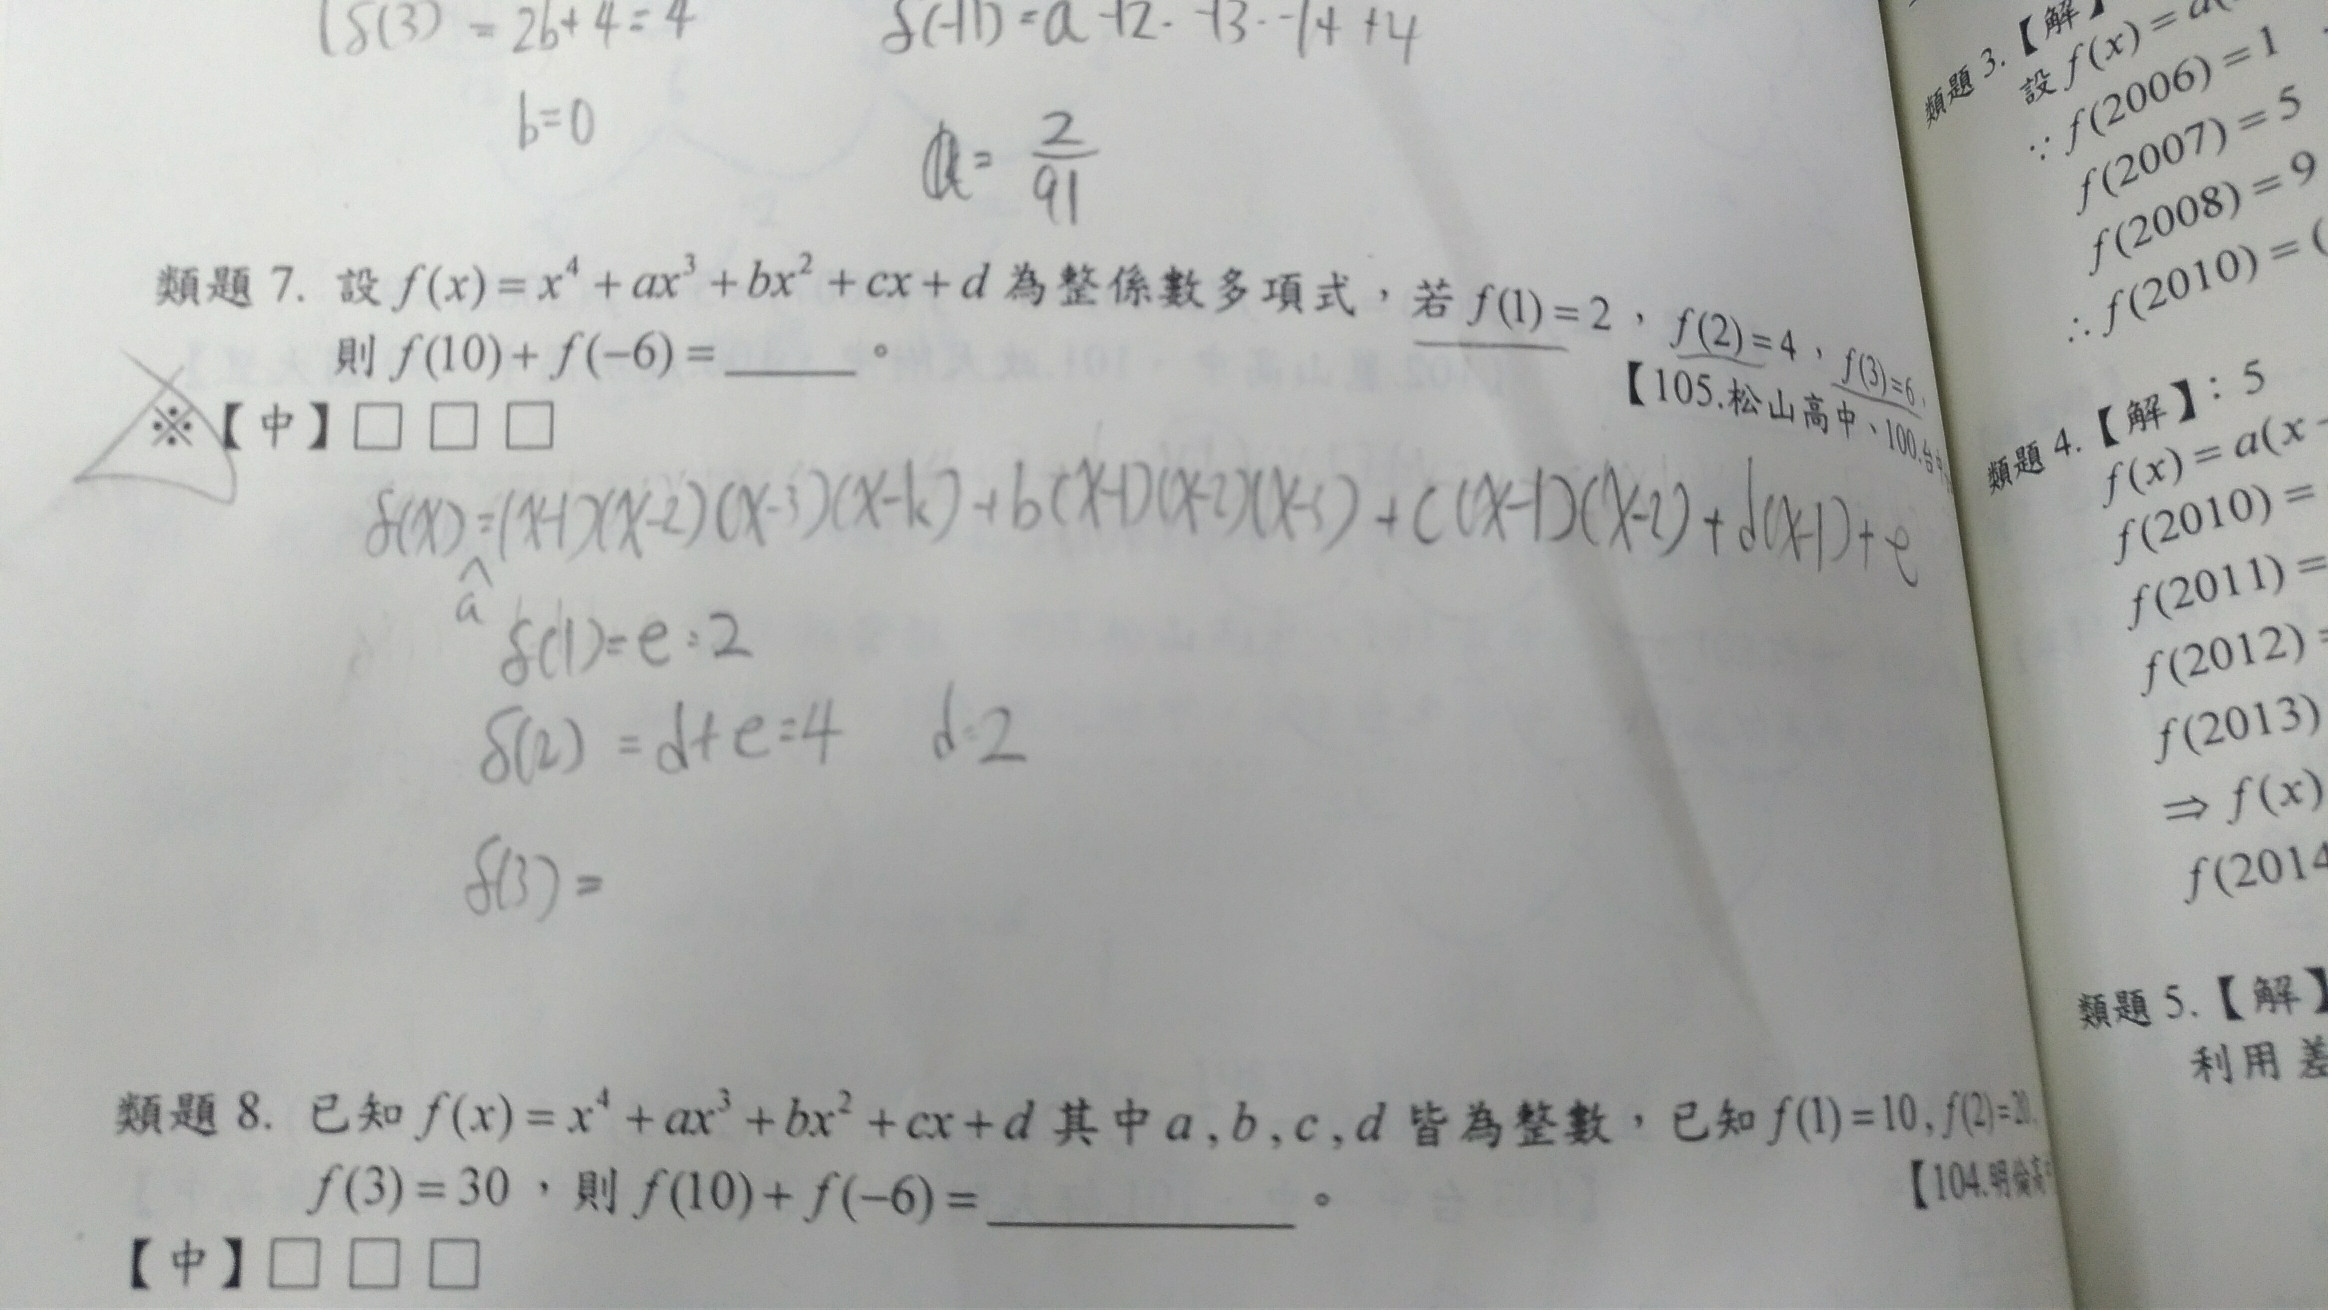 f(3) = 2b+4=4
f(-11)=a -12. -13. -14 +4
b=0
a= 2/91
類題 7. 設 f(x) = x⁴ + ax³ + bx² + cx + d 為整係數多項式，若 f(1) = 2，f(2) = 4，f(3)=6,
則 f(10) + f(−6) = ______ 。
【105.松山高中、100.台中
※【中】□ □ □
f(x)=(x-1)(x-2)(x-3)(x-k)+b(x-1)(x-2)(x-3)+c(x-1)(x-2)+d(x-1)+e
a
f(1)=e=2
f(2) =d+e=4 d=2
f(3) =
類題 8. 已知 f(x) = x⁴ + ax³ + bx² + cx + d 其中 a , b , c , d 皆為整數，已知 f(1) = 10 , f(2)=20,
f(3) = 30，則 f(10) + f(−6) = ____________ 。
【104.明倫高中
【中】□ □ □
類題 3.【解】
設 f(x) = a(
∵ f(2006) = 1
f(2007) = 5
f(2008) = 9
∴ f(2010) = (
類題 4.【解】: 5
f(x) = a(x −
f(2010) =
f(2011) =
f(2012) =
f(2013)
⇒ f(x)
f(2014
類題 5.【解】
利用差